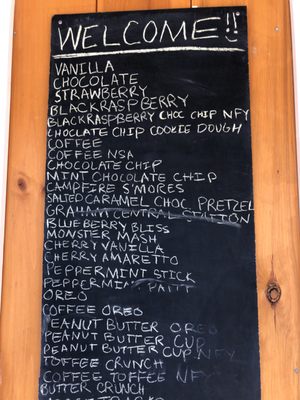 WELCOME!!
VANILLA
CHOCOLATE
STRAWBERRY
BLACKRASPBERRY
BLACKRASPBERRY CHOC CHIP NFY
CHOCLATE CHIP COOKIE DOUGH
COFFEE
COFFEE NSA
CHOCOLATE CHIP
MINT CHOCOLATE CHIP
CAMPFIRE S'MORES
SALTED CARAMEL CHOC PRETZEL
GRAHAM CENTRAL STATION
BLUEBERRY BLISS
MONSTER MASH
CHERRY VANILLA
CHERRY AMARETTO
PEPPERMINT STICK
PEPPERMINT PATT
OREO
COFFEE OREO
PEANUT BUTTER OREO
PEANUT BUTTER CUP
PEANUT BUTTER CUP NFY
TOFFEE CRUNCH
COFFEE TOFFEE NFY
BUTTER CRUNCH